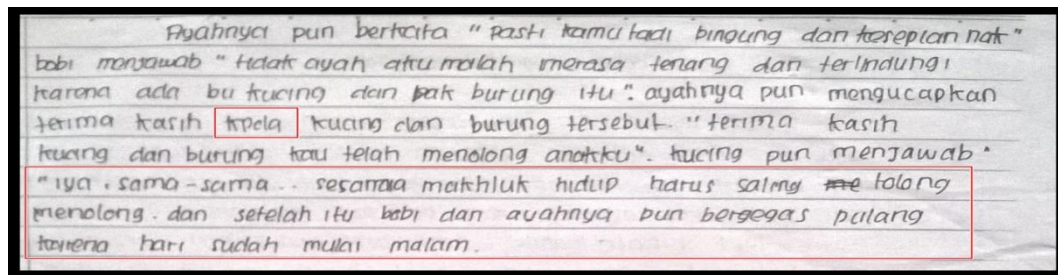 Ayahnya pun berkata " pasti kamu tadi bingung dan kesepian nak "
bobi menjawab " tidak ayah aku malah merasa tenang dan terlindungi
karena ada bu kucing dan pak burung itu ". ayahnya pun mengucapkan
terima kasih kpela kucing dan burung tersebut. " terima kasih
kucing dan burung kau telah menolong anakku ". kucing pun menjawab "
" iya . sama - sama .. sesama makhluk hidup harus saling tolong
menolong . dan setelah itu bobi dan ayahnya pun bergegas pulang
karena hari sudah mulai malam .